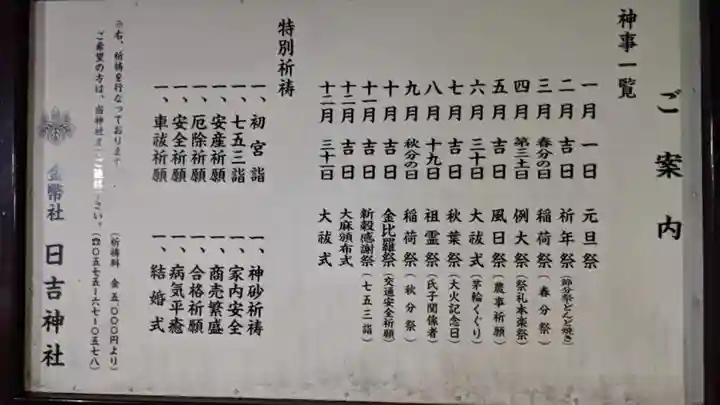 ご案内
神事一覧
一月 一日 元旦祭
二月 吉日 祈年祭(節分祭どんど焼き)
三月 春分の日 稲荷祭(春分祭)
四月 第三土日 例大祭(祭礼本楽祭)
五月 吉日 風日祭(農事祈願)
六月 三十日 大祓式(茅輪くぐり)
七月 吉日 秋葉祭(大火記念日)
八月 十九日 祖霊祭(氏子関係者)
九月 秋分の日 稲荷祭(秋分祭)
十月 吉日 金比羅祭(交通安全祈願)
十一月 吉日 新穀感謝祭(七五三詣)
十二月 吉日 大麻頒布式
十二月 三十一日 大祓式
特別祈祷
一、初宮詣 一、神砂祈祷
一、七五三詣 一、家内安全
一、安産祈願 一、商売繁盛
一、厄除祈願 一、合格祈願
一、安全祈願 一、病気平癒
一、車祓祈願 一、結婚式
※右、祈祷を行なっております (祈祷料 金 五、〇〇〇円より)
ご希望の方は、当神社までご連絡下さい。(☎〇五七五−六七−〇五七八)
金幣社 日吉神社